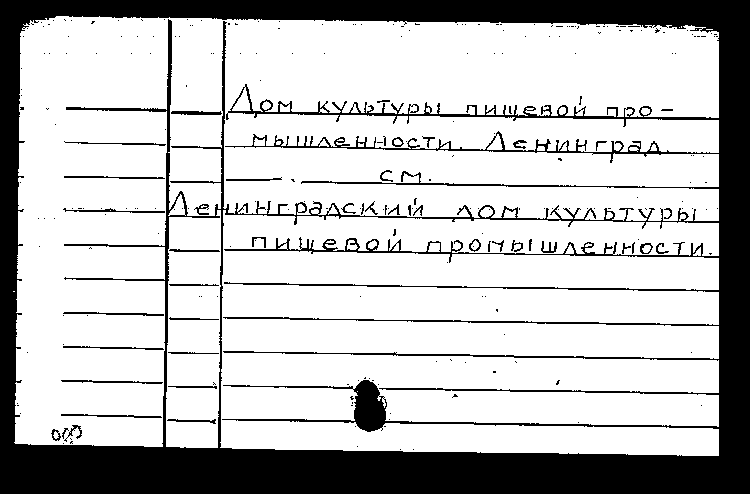 Дом культуры пищевой про-
мышленности. Ленинград.
см.
Ленинградский дом культуры
пищевой промышленности.